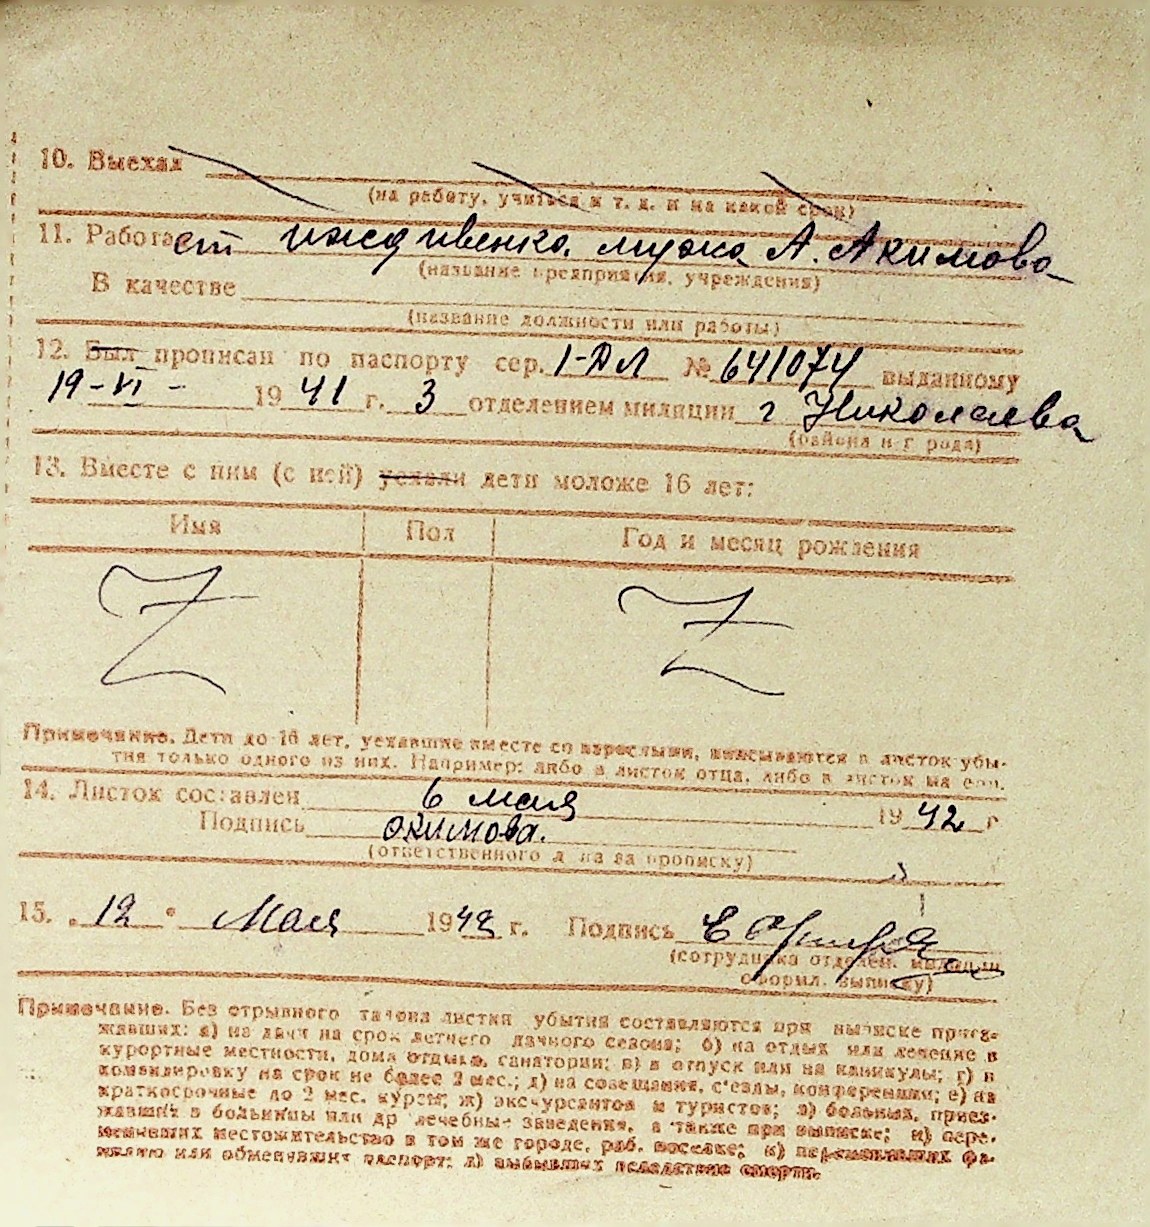 10. Выехал
(на работу, учиться и т. д. и на какой срок)
11. Работает иждивенка мужа А. Акимова
(название предприятия, учреждения)
В качестве
(название должности или работы)
12. Был прописан по паспорту сер. I-АЛ № 641074 выданному
19-VI- 1941 г. 3 отделением милиции г Николаева
(района и г рода)
13. Вместе с ним (с ней) уехали дети моложе 16 лет:
Имя Пол Год и месяц рождения
Z Z
Примечание. Дети до 16 лет, уехавшие вместе со взрослыми, вписываются в листок убы-
тия только одного из них. Например: либо в листок отца, либо в листок ма ери.
14. Листок составлен 6 мая 1942 г
Подпись Акимова.
(ответственного л ца за прописку)
15. " 12 " Мая 1942 г. Подпись
(сотрудника отделен. милиции
оформл. выписку)
Примечание. Без отрывного талона листки убытия составляются при выписке приез-
жавших: а) на дачи на срок летнего дачного сезона; б) на отдых или лечение в
курортные местности, дома отдыха, санатории; в) в отпуск или на каникулы; г) в
командировку на срок не более 2 мес.; д) на совещания, с'езды, конференции; е) на
краткосрочные до 2 мес. курсы; ж) экскурсантов и туристов; з) больных, приез-
жавших в больницы или др лечебные заведения, а также при выписке; и) пере-
менивших местожительство в том же городе, раб. поселке; к) переменивших фа-
милию или обменявших паспорт; л) выбывших вследствие смерти.